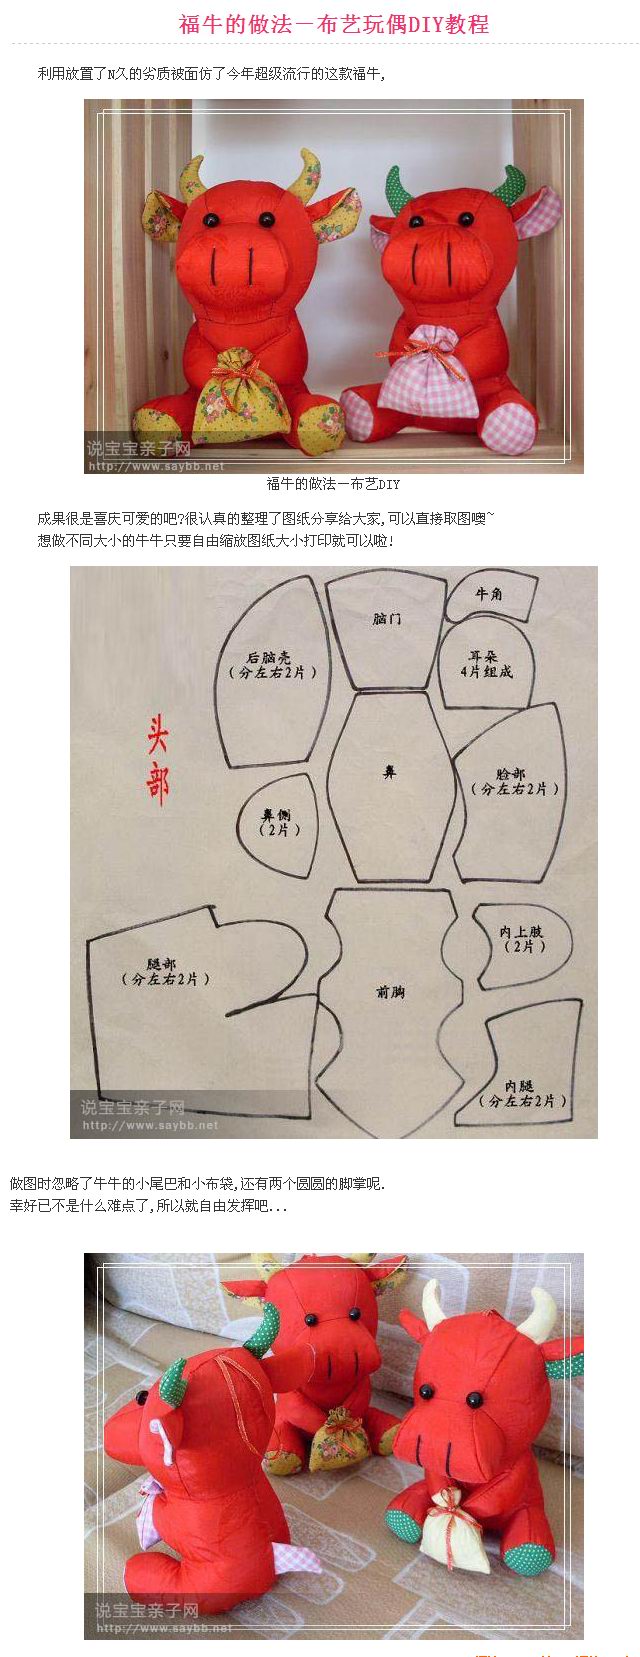 福牛的做法－布艺玩偶DIY教程
利用放置了N久的劣质被面仿了今年超级流行的这款福牛,
说宝宝亲子网
http://www.saybb.net
福牛的做法－布艺DIY
成果很是喜庆可爱的吧?很认真的整理了图纸分享给大家,可以直接取图噢~
想做不同大小的牛牛只要自由缩放图纸大小打印就可以啦!
牛角
脑门
后脑壳
(分左右2片)
耳朵
4片组成
头部
鼻
脸部
(分左右2片)
鼻侧
(2片)
内上肢
(2片)
腿部
(分左右2片)
前胸
内腿
(分左右2片)
说宝宝亲子网
http://www.saybb.net
做图时忽略了牛牛的小尾巴和小布袋,还有两个圆圆的脚掌呢.
幸好已不是什么难点了,所以就自由发挥吧...
说宝宝亲子网
http://www.saybb.net